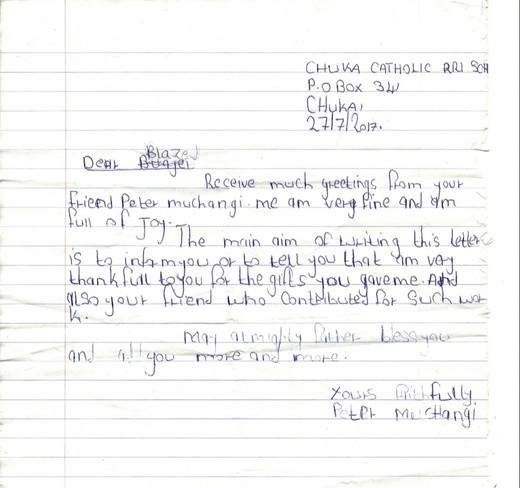 CHUKA CATHOLIC PRI SCH
P.O BOX 34
CHUKA,
27/7/2017.
Blaze
Dear
Receive much greetings from your
friend Peter muchangi. me am very fine and am
full of Joy.
The main aim of writing this letter
is to inform you or to tell you that am very
thankfull to you for the gifts you gave me. And
also your friend who contributed for such wor
k.
May almighty father bless you
and all you more and more.
Yours faithfully.
Peter Muchangi